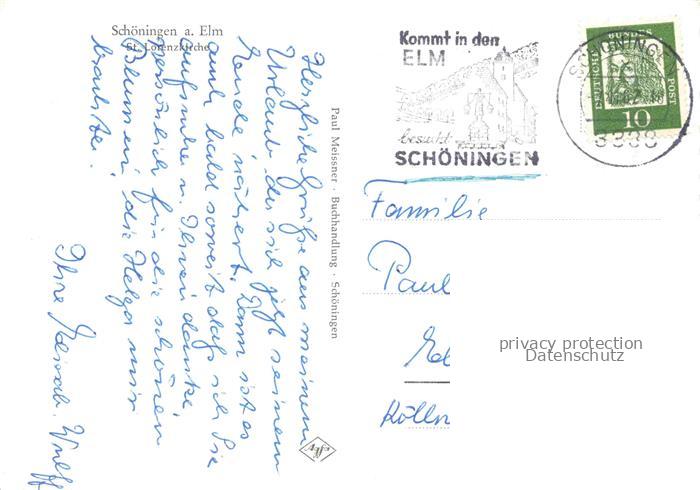 Schöningen a. Elm
St. Lorenzkirche
Kommt in den
ELM
besucht
SCHÖNINGEN
DEUTSCHE BUNDESPOST
10
SCHÖNINGEN
3338
Paul Meissner · Buchhandlung · Schöningen
Agfa
Herzliche Grüße aus meinem
Urlaub der sich jetzt seinem
Ende nähert. Dann ist es
auch bald soweit daß ich Sie
aufsuche u. Ihnen danke,
persönlich für die schönen
Blumen, die Helga mir
brachte!
Ihre Wulff
Familie
Paul
Kölln
privacy protection
Datenschutz